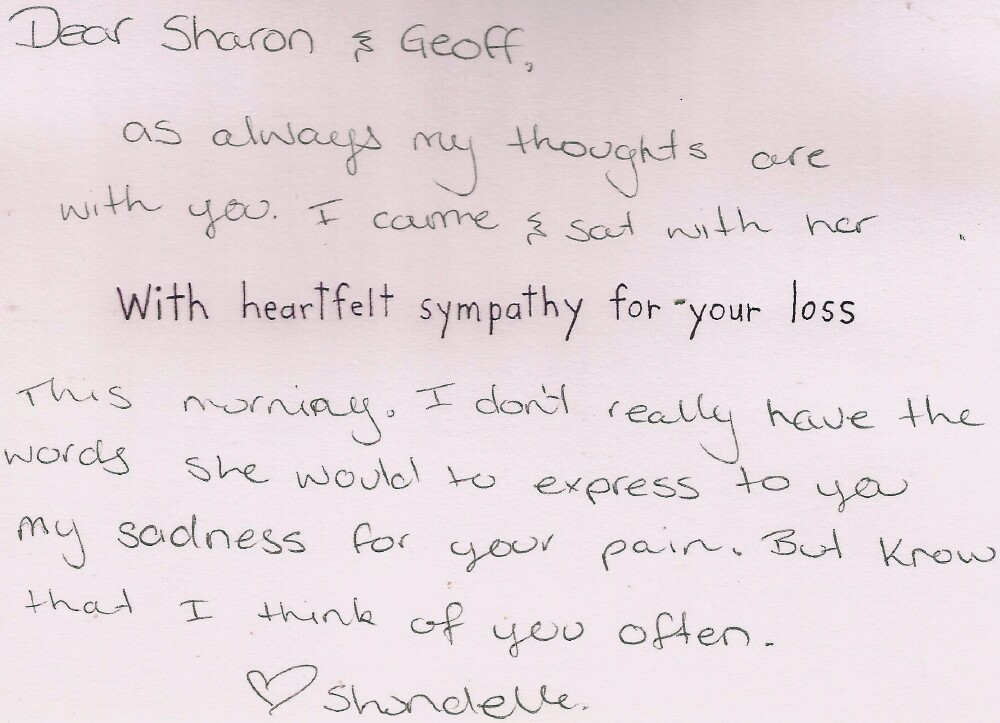 Dear Sharon & Geoff,
as always my thoughts are
with you. I came & sat with her
With heartfelt sympathy for your loss
This morning. I don't really have the
words she would to express to you
my sadness for your pain. But know
that I think of you often.
♡ Shondelle.